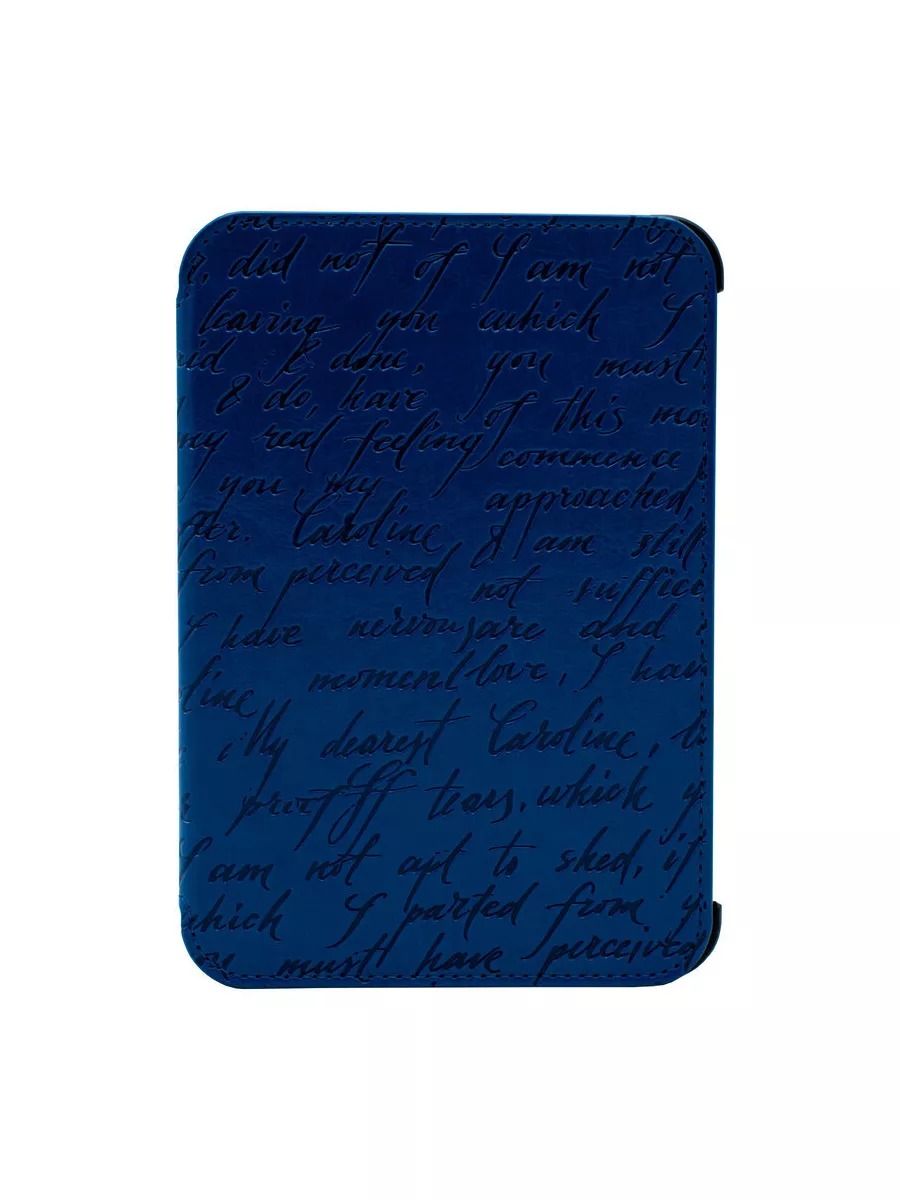 did not of I am not
leaving you which I
I done, you must
& do, have of this
my real feeling commence
you, my approached,
Caroline I am still
from perceived not suffice
I have nervous are and
moment love, I have
line,
My dearest Caroline,
proof tears, which
I am not apt to shed, if
which I parted from y
must have perceived